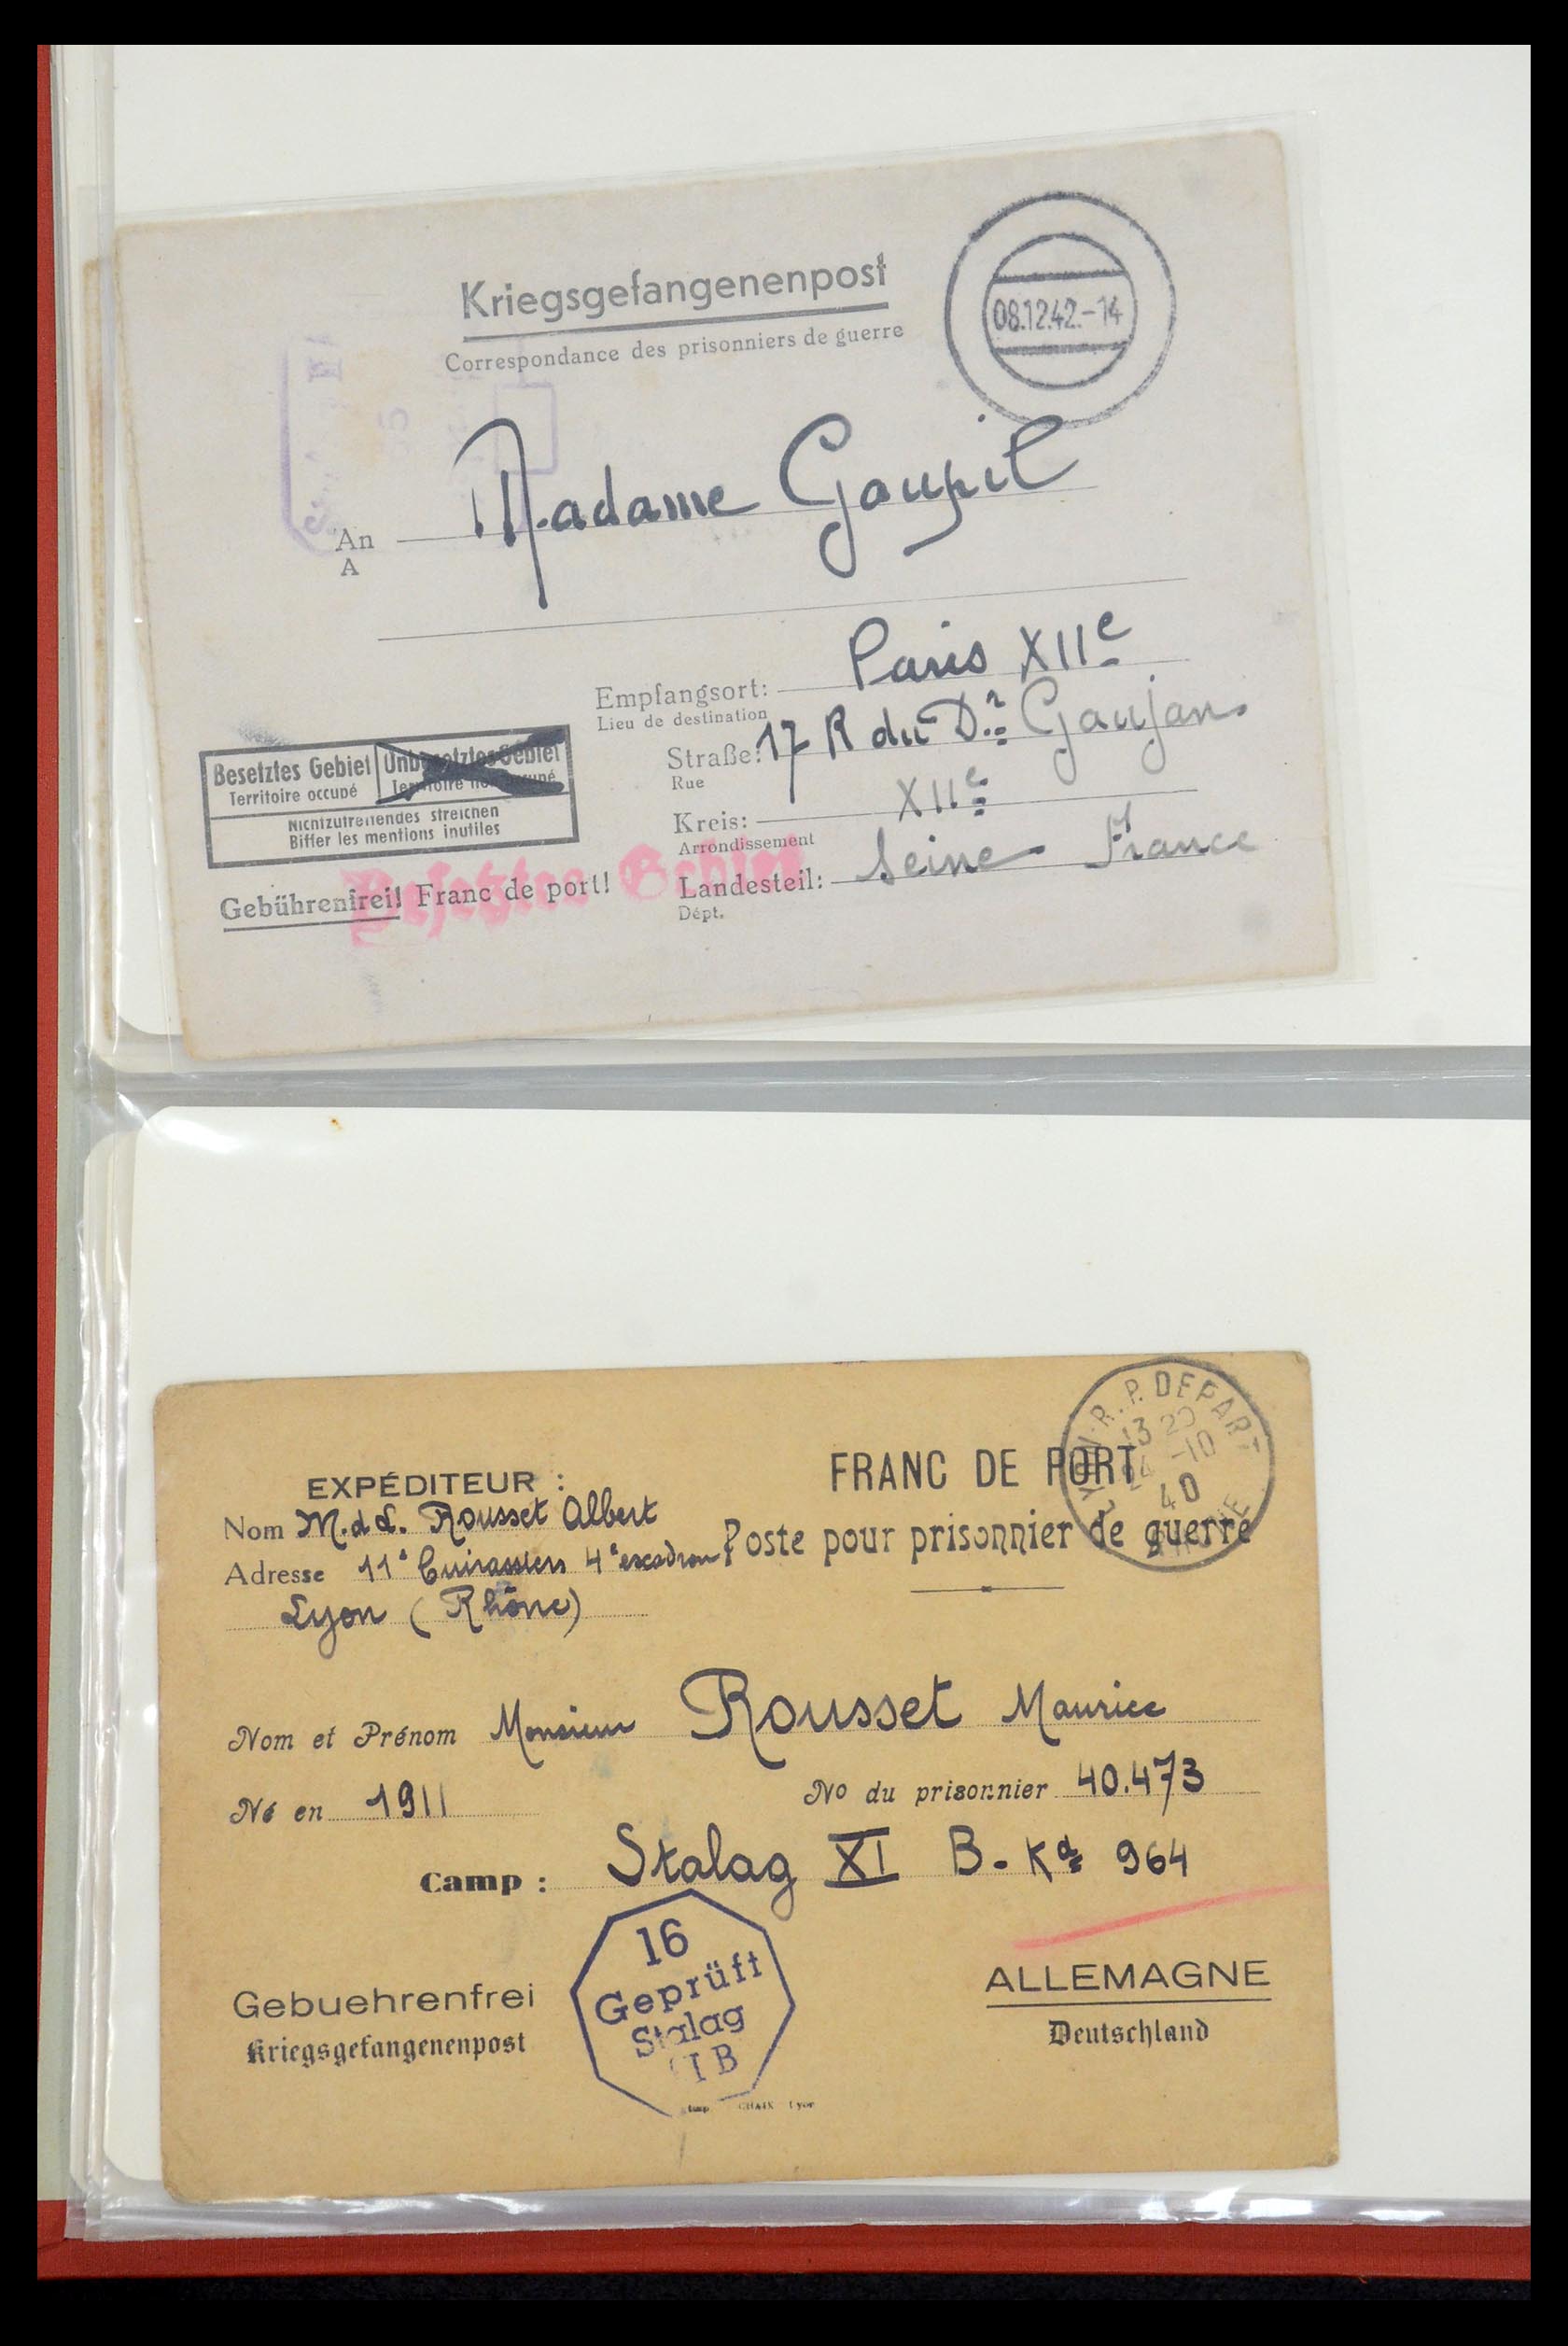 Kriegsgefangenenpost
Correspondance des prisonniers de guerre
08.12.42.-14
An Madame Goupil
A
Empfangsort: Paris XIIe
Lieu de destination
Straße: 17 R du Dr Goujon
Rue
Kreis: XIIe
Arrondissement
Landesteil: Seine France
Dépt.
Besetztes Gebiet
Territoire occupé
Unbesetztes Gebiet
Territoire non occupé
Nichtzutreffendes streichen
Biffer les mentions inutiles
Gebührenfrei! Franc de port!
Besetztes Gebiet
R.P. DEPART
13 20
24 -10
40
EXPÉDITEUR :
Nom M.d.L. Rousset Albert
Adresse 11e Cuirassiers 4e escadron
Lyon (Rhône)
FRANC DE PORT
Poste pour prisonnier de guerre
Nom et Prénom Monsieur Rousset Maurice
Né en 1911
No du prisonnier 40.473
Camp : Stalag XI B - Kdo 964
16
Geprüft
Stalag
I B
Gebuehrenfrei
Kriegsgefangenenpost
ALLEMAGNE
Deutschland
Imp. CHAIX Lyon